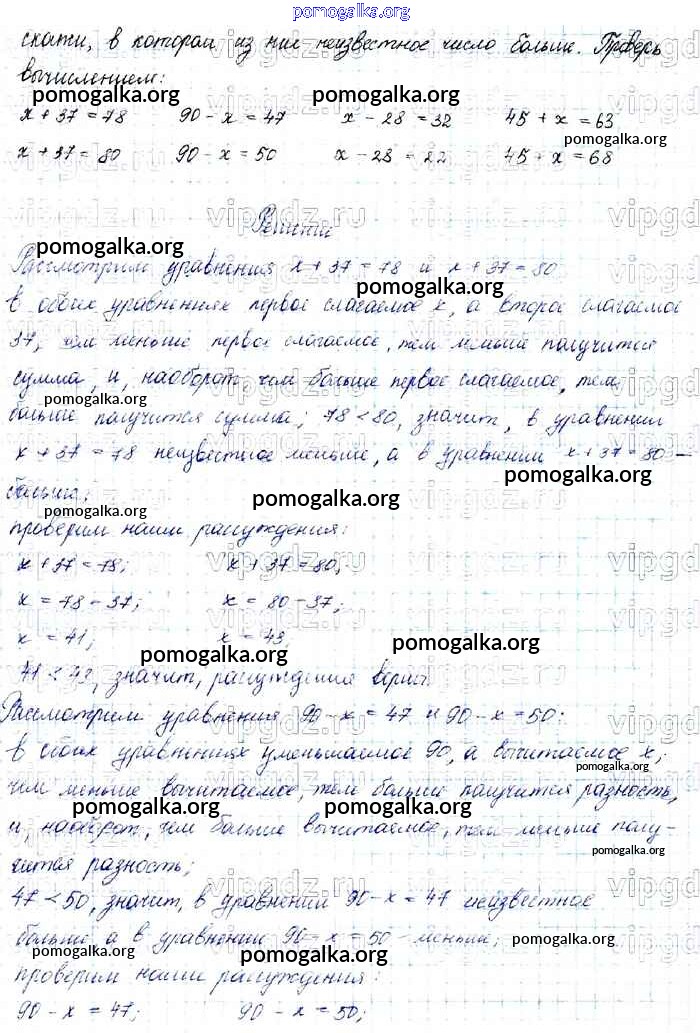 pomogalka.org
скажи, в котором из них неизвестное число больше. Проверь
вычислением:
pomogalka.org pomogalka.org
x + 37 = 78 90 - x = 47 x - 28 = 32 45 + x = 63
pomogalka.org
x + 37 = 80 90 - x = 50 x - 28 = 22 45 + x = 68
vipgdz.ru
Решение
pomogalka.org
Рассмотрим уравнения x + 37 = 78 и x + 37 = 80
pomogalka.org
в обоих уравнениях первое слагаемое x, а второе слагаемое
37, чем меньше первое слагаемое, тем меньше получится
сумма, и, наоборот, чем больше первое слагаемое, тем
pomogalka.org
больше получится сумма; 78 < 80, значит, в уравнении
x + 37 = 78 неизвестное меньше, а в уравнении x + 37 = 80 -
pomogalka.org
больше;
pomogalka.org
проверим наши рассуждения:
x + 37 = 78; x + 37 = 80;
x = 78 - 37; x = 80 - 37;
x = 41; x = 43
pomogalka.org pomogalka.org
41 < 43, значит, рассуждения верны.
Рассмотрим уравнения 90 - x = 47 и 90 - x = 50:
в обоих уравнениях уменьшаемое 90, а вычитаемое x;
pomogalka.org
чем меньше вычитаемое, тем больше получится разность,
pomogalka.org pomogalka.org
и, наоборот, чем больше вычитаемое, тем меньше полу-
pomogalka.org
чится разность;
47 < 50, значит, в уравнении 90 - x = 47 неизвестное
больше, а в уравнении 90 - x = 50 - меньше;
pomogalka.org pomogalka.org pomogalka.org
проверим наши рассуждения:
90 - x = 47; 90 - x = 50;